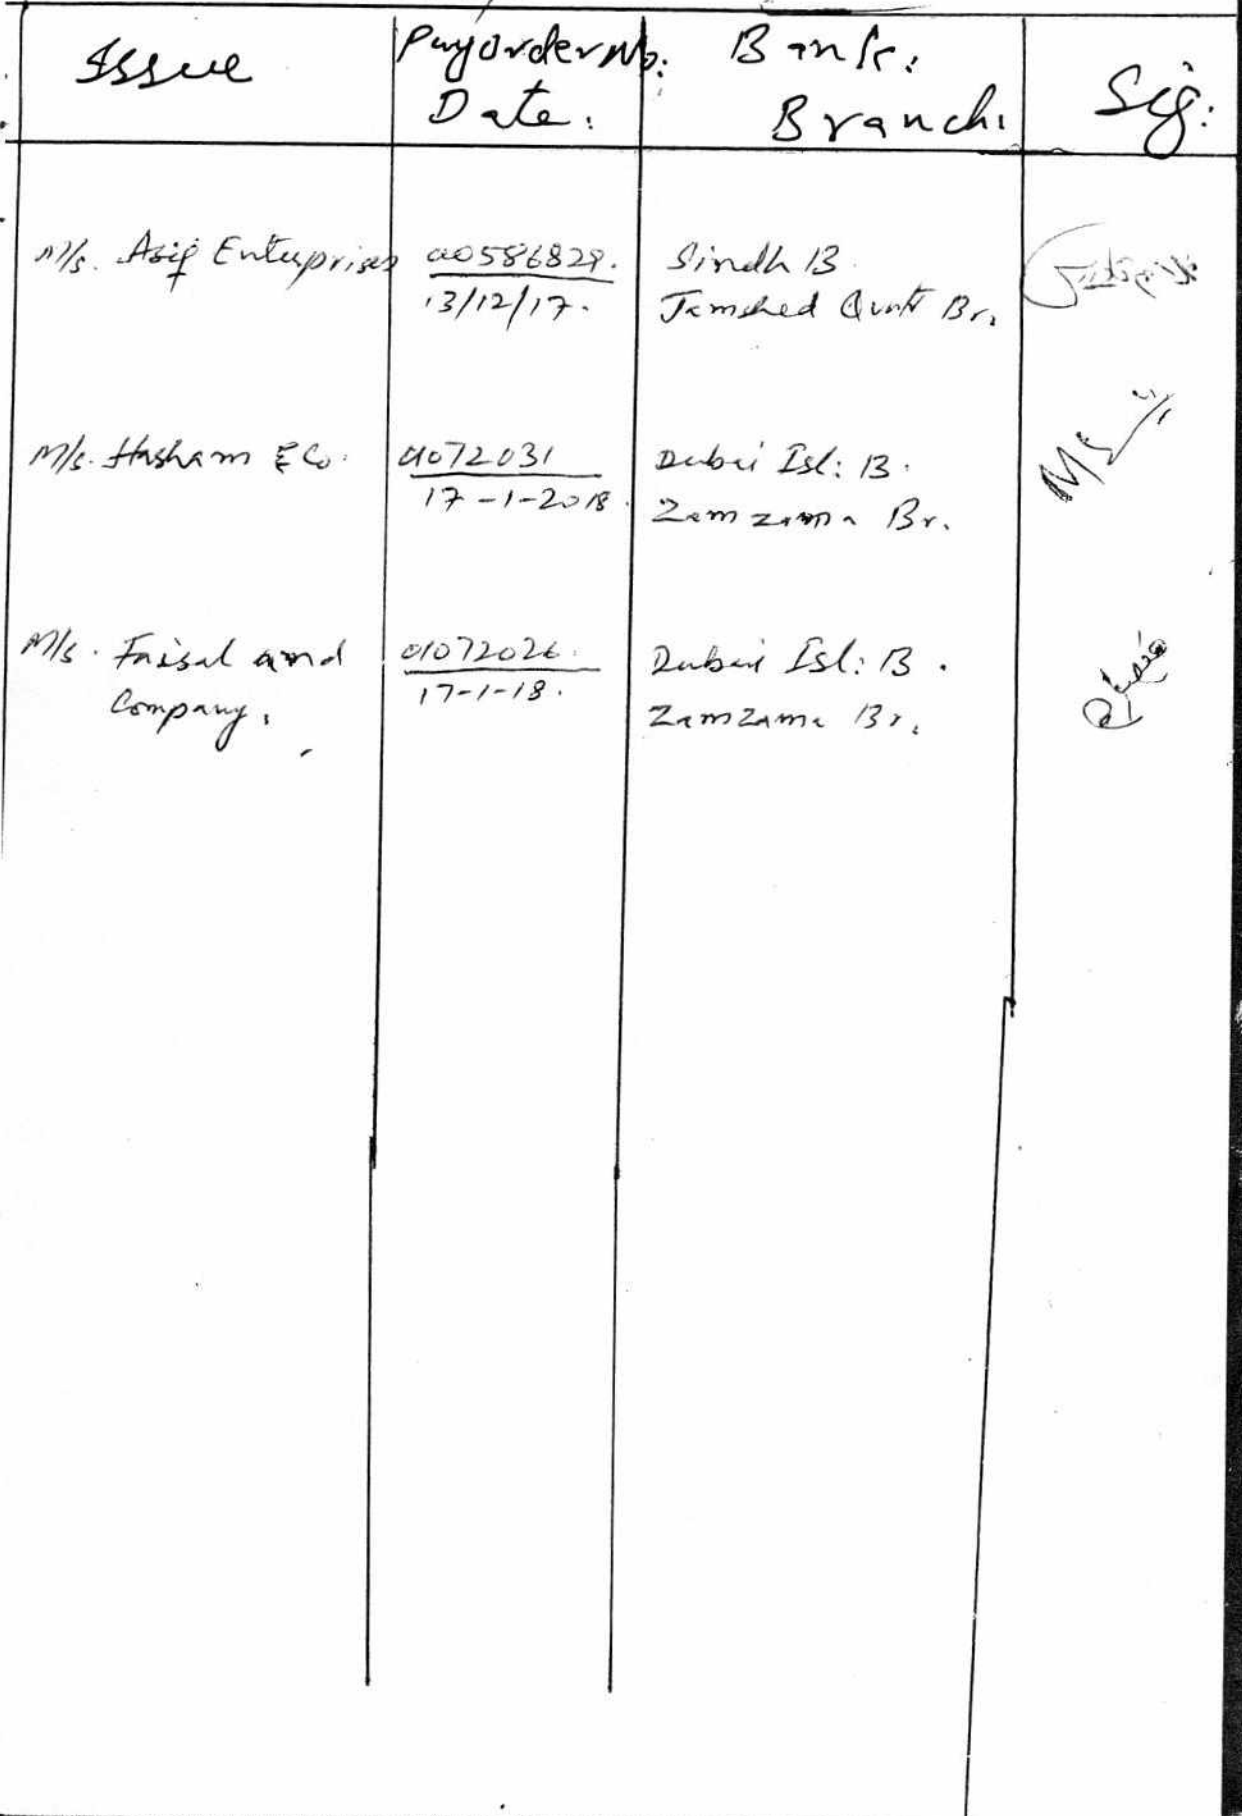 Issue
Payorder No:
Date:
Bank:
Branch:
Sig:
M/s. Asif Enterprises
00586829.
13/12/17.
Sindh B.
Jamshed Quat Br.
M/s. Hasham & Co.
01072031
17-1-2018.
Dubai Isl: B.
Zamzama Br.
M/s. Faisal and
Company.
01072026.
17-1-18.
Dubai Isl: B.
Zamzama Br.